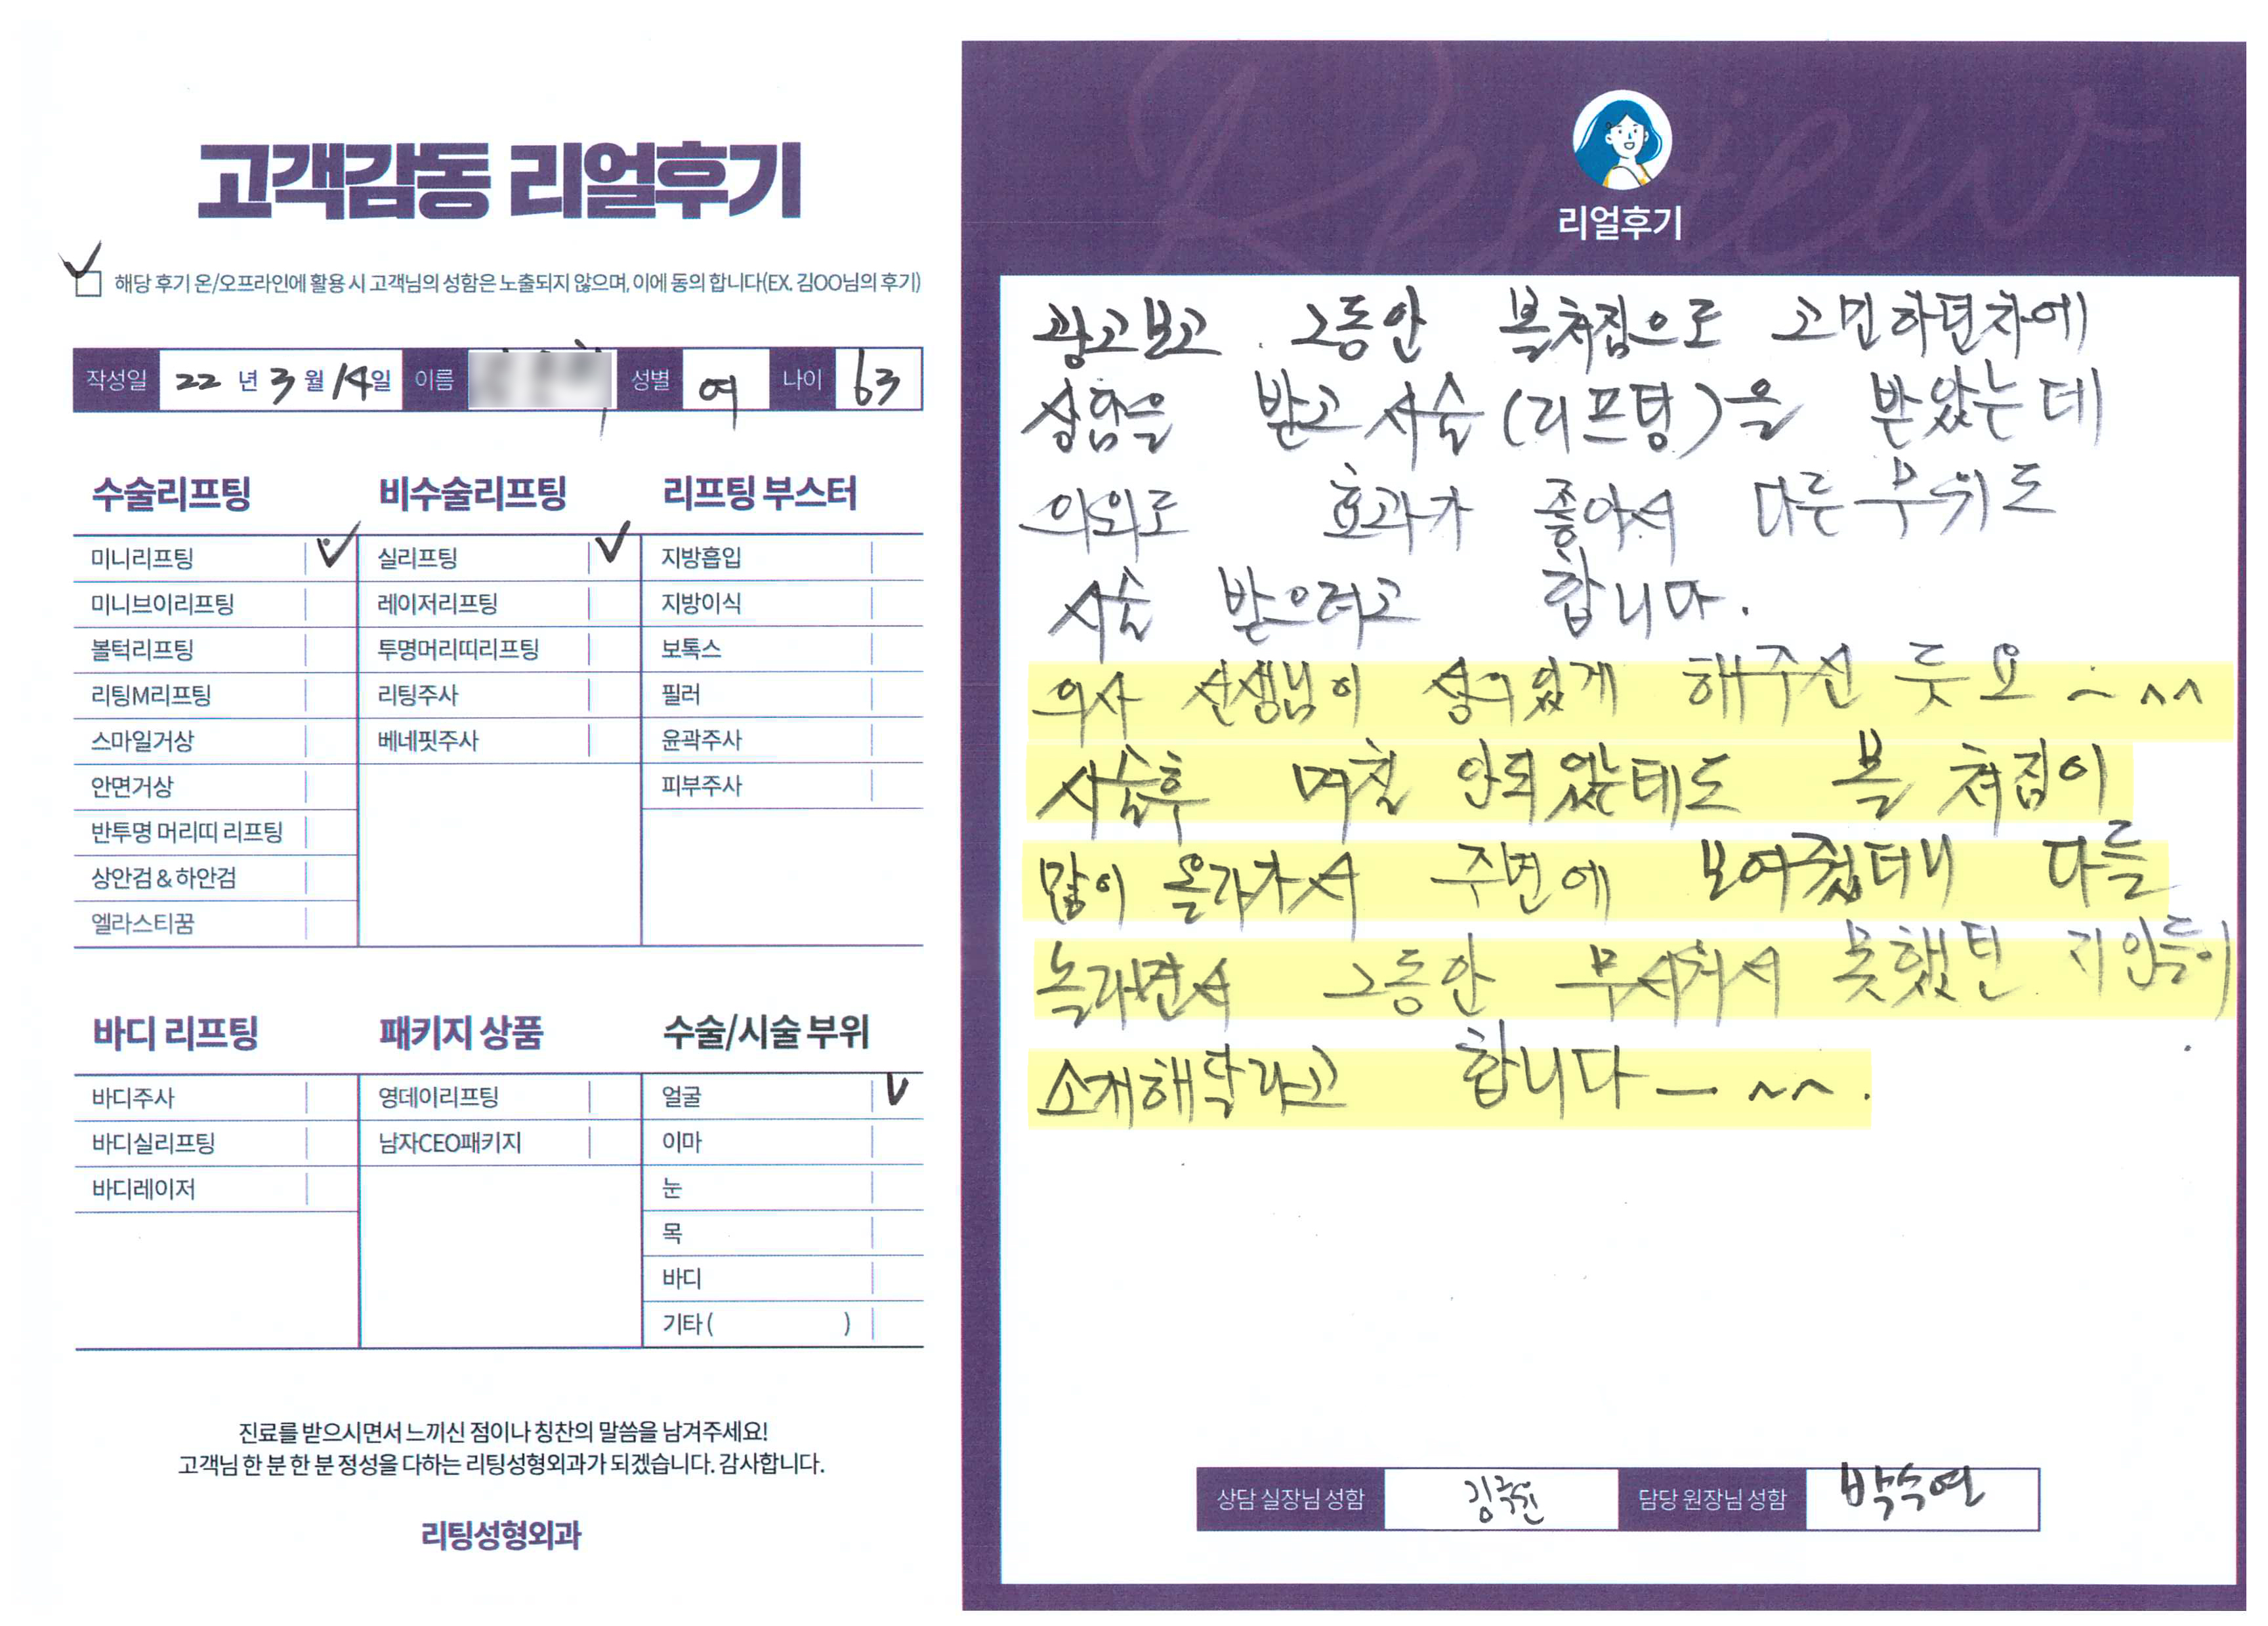 고객감동 리얼후기
해당 후기 온/오프라인에 활용 시 고객님의 성함은 노출되지 않으며, 이에 동의 합니다(EX. 김OO님의 후기)
작성일 22 년 3 월 14 일 이름 성별 여 나이 63
수술리프팅
미니리프팅
미니브이리프팅
볼턱리프팅
리팅M리프팅
스마일거상
안면거상
반투명 머리띠 리프팅
상안검 & 하안검
엘라스티꿈
비수술리프팅
실리프팅
레이저리프팅
투명머리띠리프팅
리팅주사
베네핏주사
리프팅 부스터
지방흡입
지방이식
보톡스
필러
윤곽주사
피부주사
바디 리프팅
바디주사
바디실리프팅
바디레이저
패키지 상품
영데이리프팅
남자CEO패키지
수술/시술 부위
얼굴
이마
눈
목
바디
기타 ( )
진료를 받으시면서 느끼신 점이나 칭찬의 말씀을 남겨주세요!
고객님 한 분 한 분 정성을 다하는 리팅성형외과가 되겠습니다. 감사합니다.
리팅성형외과
Review
리얼후기
광고보고 그동안 볼쳐짐으로 고민하던차에
상담을 받고 시술(리프팅)을 받았는데
의외로 효과가 좋아서 다른부위도
시술 받으려고 합니다.
의사 선생님이 성의있게 해주신 듯요~^^
시술후 며칠 안되었는데도 볼 쳐짐이
많이 올라가서 주변에 보여줬더니 다들
놀라면서 그동안 무서워서 못했던 지인들이
소개해달라고 합니다— ~^^.
상담 실장님 성함 담당 원장님 성함 박수연